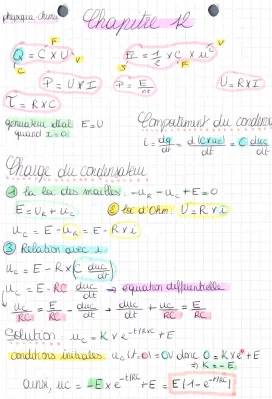 physique-chimie
Chapitre 12
F V
Q = C × U
C
E = 1/2 × C × u²
J F V
P = U × I
P = E/Δt
U = R × I
τ = R × C
générateur idéal E=U
quand i=0
Comportement du condensateur
i = dq/dt = d(C×uc)/dt = C duc/dt
Charge du condensateur
① la loi des mailles: -uR - uc + E = 0
E = UR + uc
② loi d'Ohm: U = R × i
uc = E - uR = E - R × i
③ Relation avec i
uc = E - R × (C duc/dt)
uc = E - RC duc/dt → équation différentielle
uc/RC = E/RC - duc/dt → duc/dt + uc/RC = E/RC
Solution: uc = K × e^-t/RC + E
conditions initiales uc(t=0)=0V donc 0 = K × e⁰ + E
⇒ K = -E
ainsi, uc = -E × e^-t/RC + E = E(1-e^-t/RC)